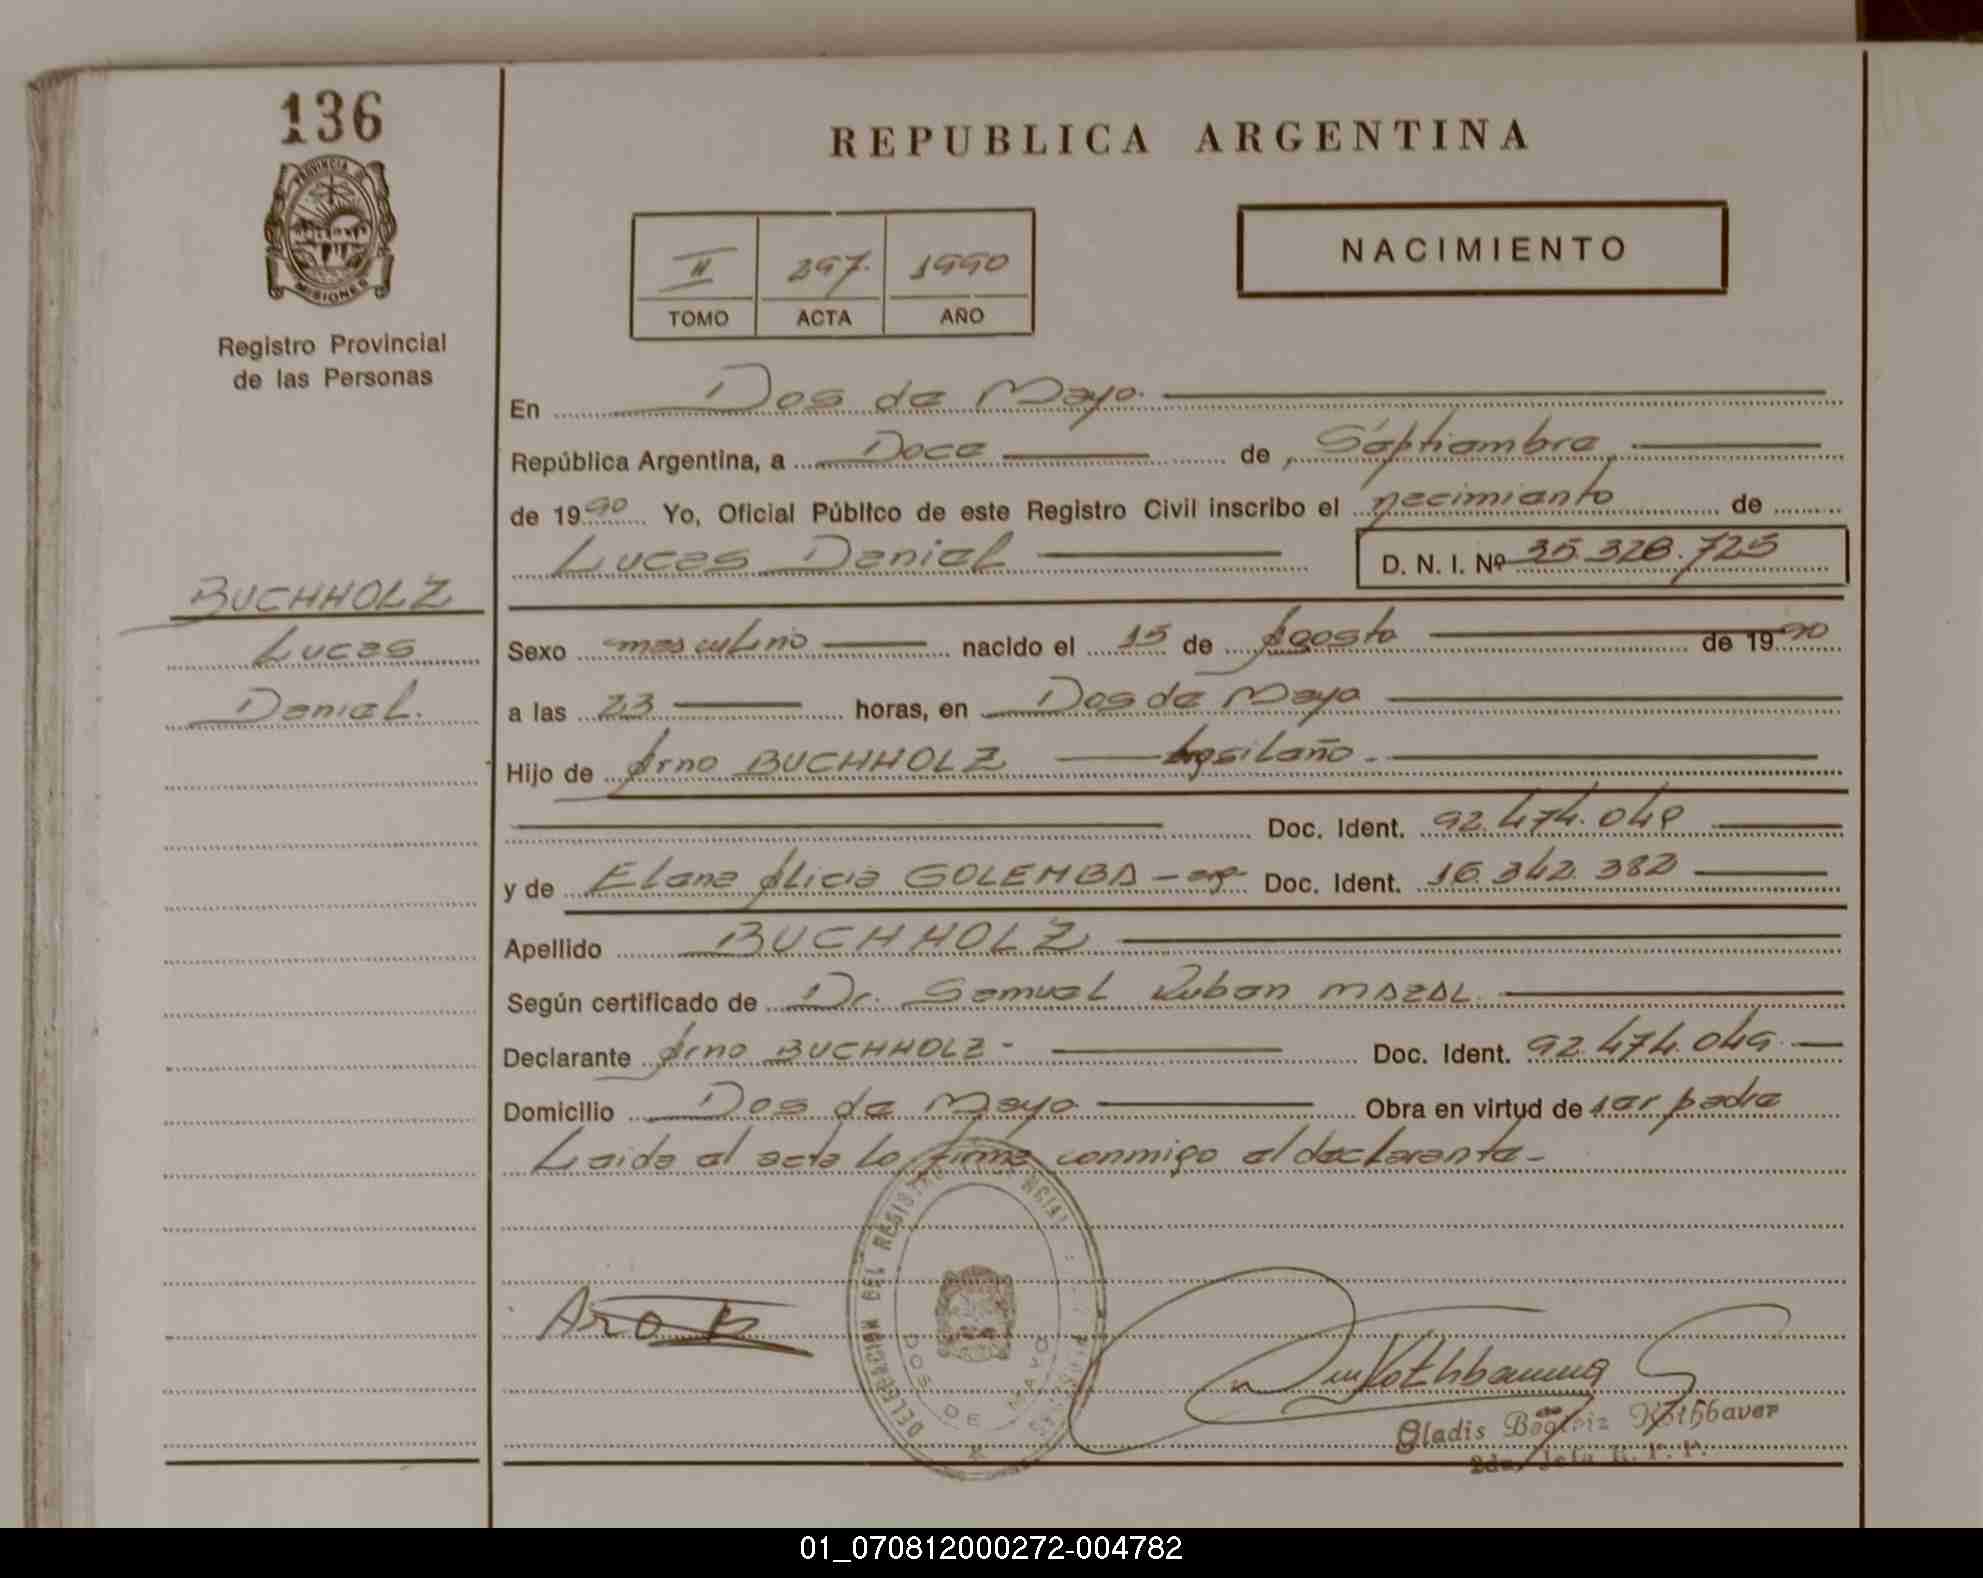 136
PROVINCIA DE
MISIONES
Registro Provincial
de las Personas
BUCHHOLZ
Lucas
Daniel.
REPUBLICA ARGENTINA
NACIMIENTO
II 297. 1990
TOMO ACTA AÑO
En Dos de Mayo.
República Argentina, a Doce de Septiembre,
de 1990 Yo, Oficial Público de este Registro Civil inscribo el nacimiento de
Lucas Daniel D. N. I. Nº 35.328.725
Sexo masculino nacido el 15 de Agosto de 1990
a las 23 horas, en Dos de Mayo
Hijo de Arno BUCHHOLZ brasileño.
Doc. Ident. 92.474.049
y de Elena Alicia GOLEMBA - arg. Doc. Ident. 16.342.382
Apellido BUCHHOLZ
Según certificado de Dr. Samuel Ruben MAZAL.
Declarante Arno BUCHHOLZ - Doc. Ident. 92.474.049
Domicilio Dos de Mayo Obra en virtud de ser padre
Leida el acta lo firma conmigo el declarante-
DELEGACION DEL REGISTRO
DOS DE MAYO
MISIONES
Gladis Beatriz Rothbauer
2da. Jefa R. P. P.
01_070812000272-004782